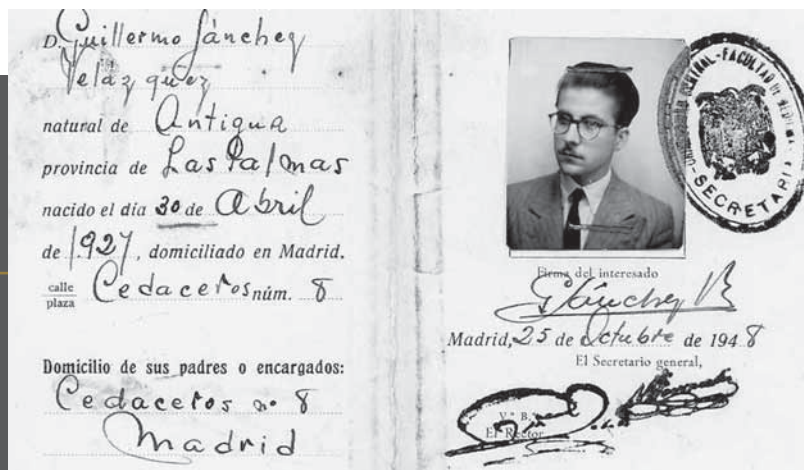 D. Guillermo Sánchez
Velázquez
natural de Antigua
provincia de Las Palmas
nacido el día 30 de Abril
de 1.927, domiciliado en Madrid.
calle
plaza Cedaceros núm. 8
Domicilio de sus padres o encargados:
Cedaceros nº 8
Madrid
CENTRAL-FACULTAD DE MEDICINA
SECRETARIA
Firma del interesado
GSánchez
Madrid, 25 de Octubre de 1948
El Secretario general,
V.º B.º
El Rector